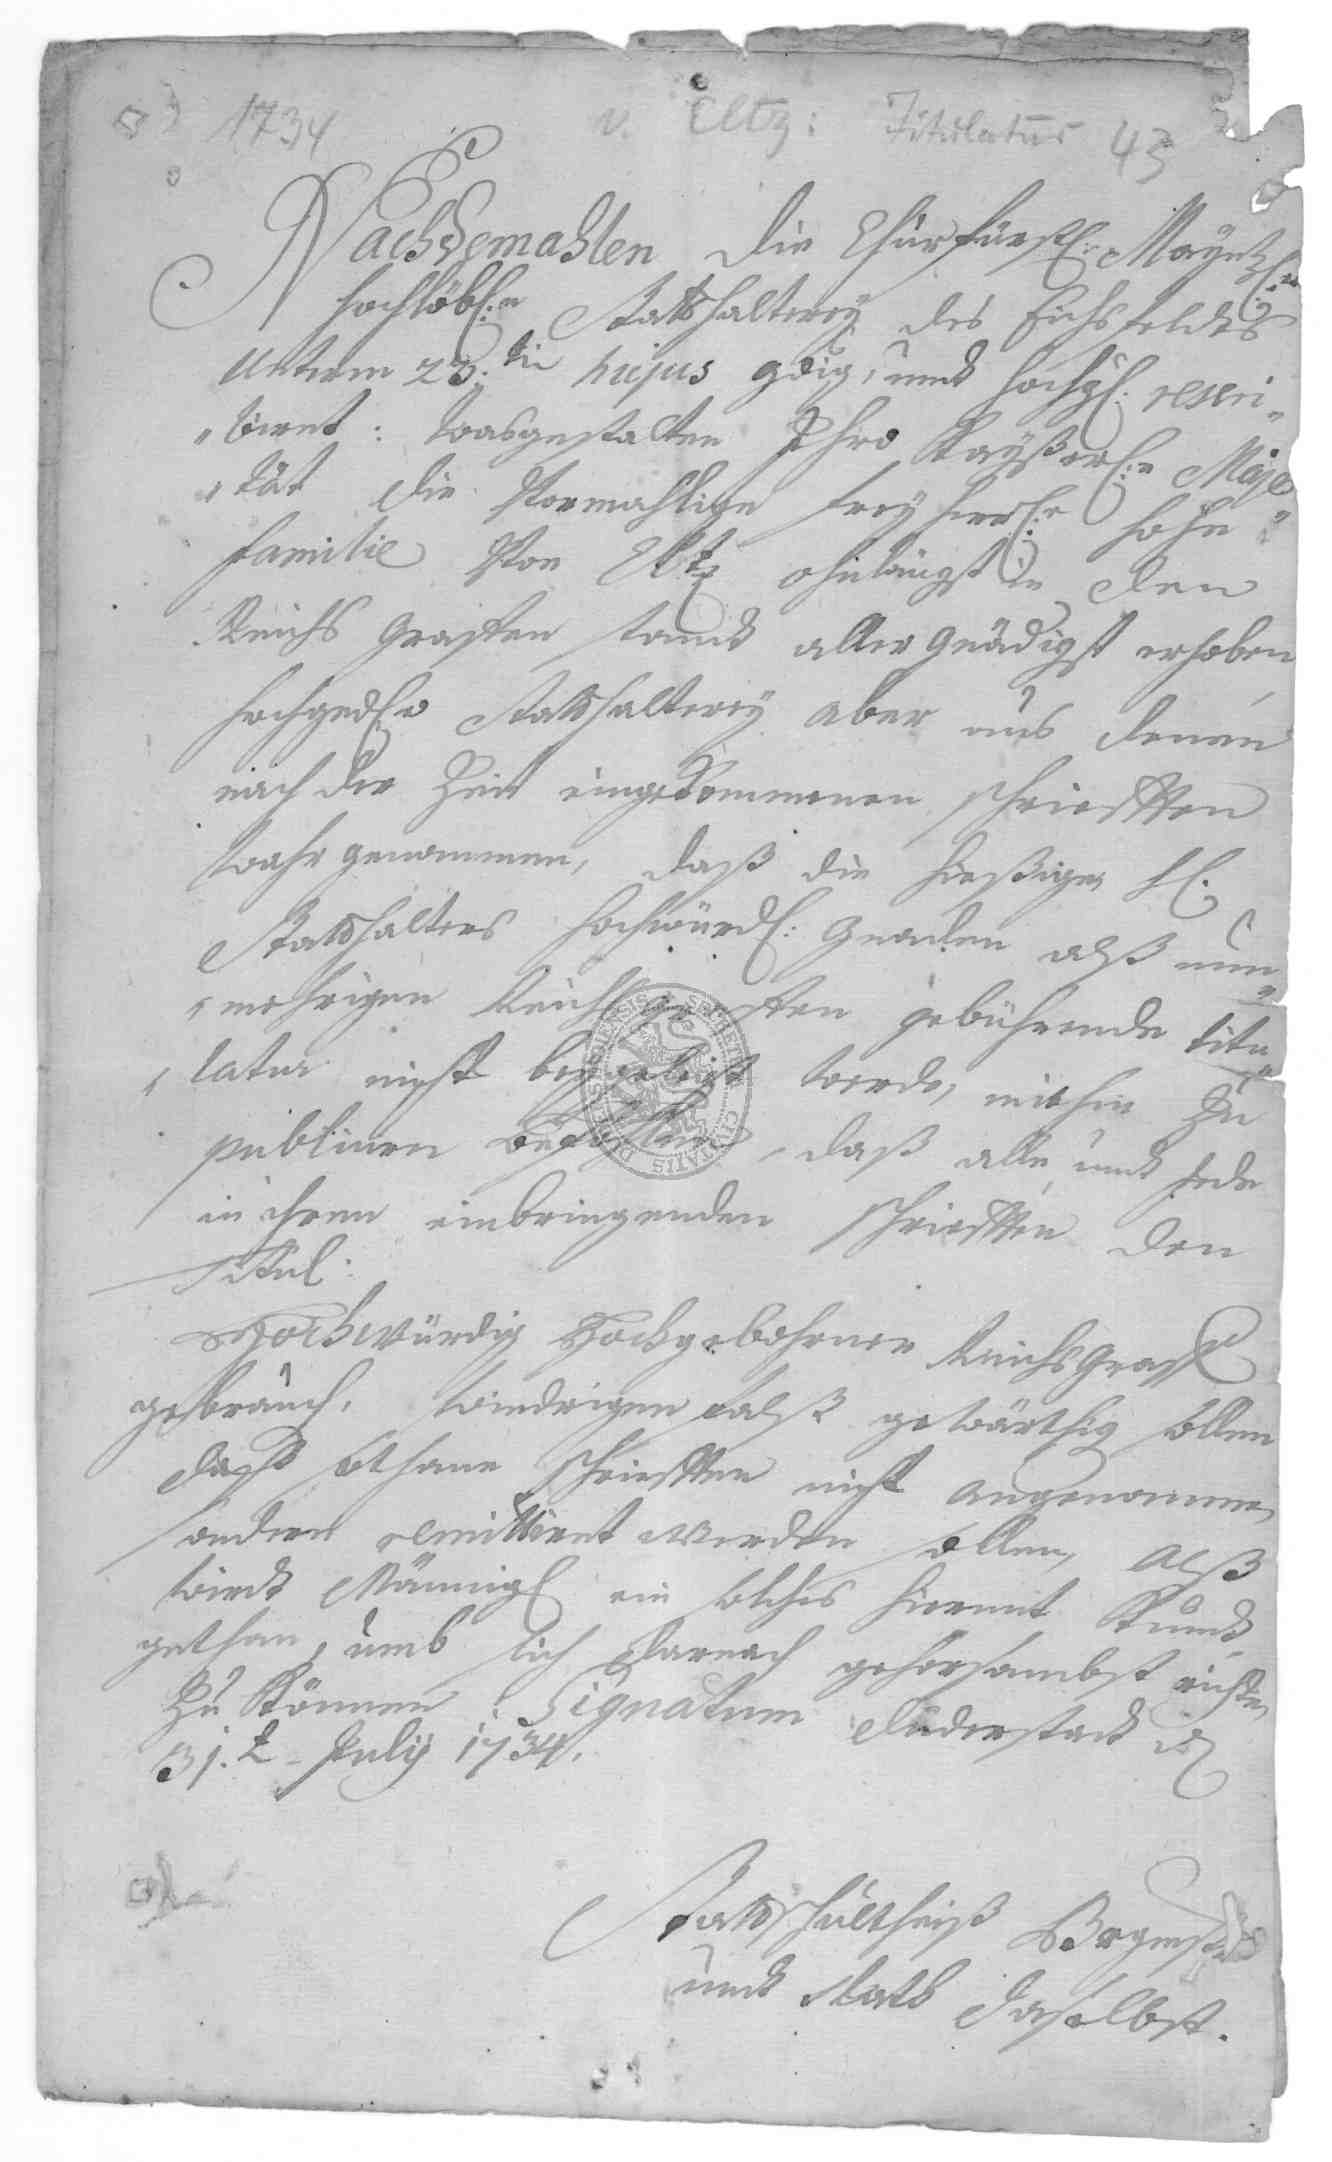 1734 v. Eltz: Titulatur 43
Nachdemahlen die Churfürstl: Mayntzl:n
hochlöbl:e Statthalterey des Eichsfeldes
unterm 23.ten hujus gdig, undt hochgl: rescri„
„biret: wasgestalten Ihro Kayßerl:e Maje„
„tät die Vormahlige freyherrl:e hohe
familie Von Eltz ohnlängst in den
Reichs Graffen standt allergnädigst erhoben,
hochgedl:e Statthalterey aber aus denen
nach der Zeit eingekommenen schriefften
wahrgenommen, daß die hießige H.
Statthalters hochwürdl: Gnaden alß nun„
„mehrigen Reichsgraffen gebührende titu„
„latur nicht beygelegt werde, mithin zu
publiciren befohlen, daß alle undt jede
in ihren einbringenden schriefften den
Titul:
Hochwürdig Hochgebohrner ReichsGraff
gebrauch, wiedrigenfalß gewärthig sollen
daß sothane schriefften nicht angenommen,
sondern remittiret werden sollen, Alß
wirdt Männigl ein solches hiermit Kundt
gethan, umb sich darnach gehorsambst richten
zu können. Signatum Duderstadt d
31.t July 1734.
Stattschultheiß Brgmstr
undt Rath daselbst.
PROPRIETAS CIVITATIS